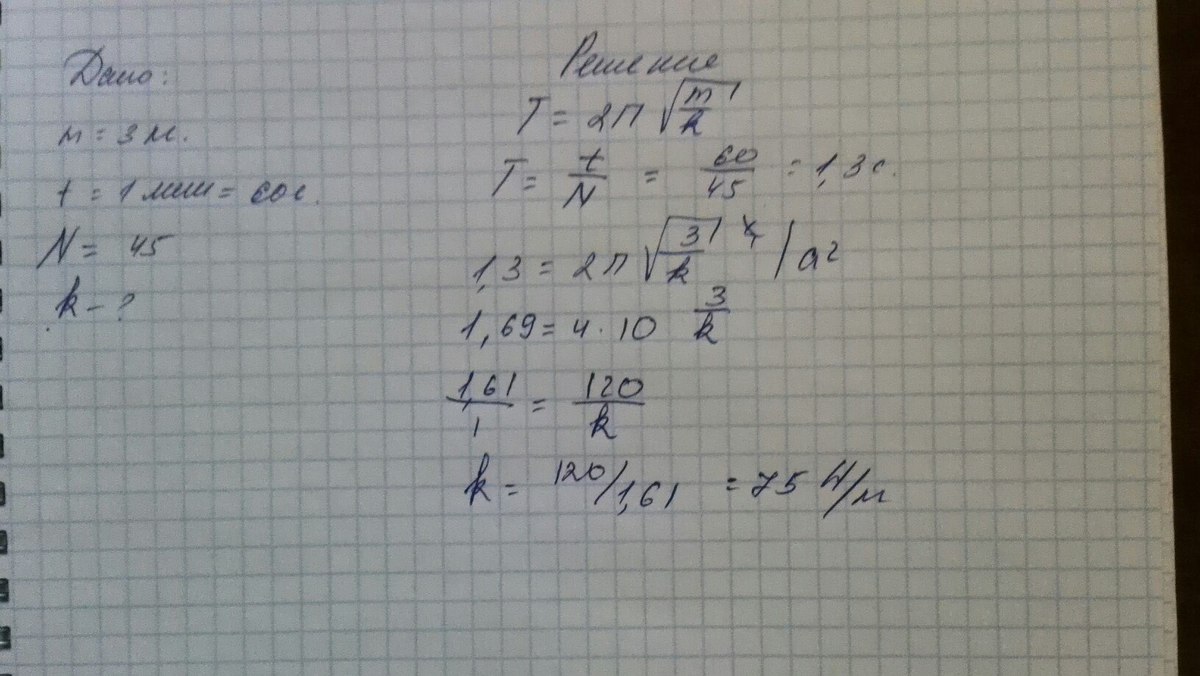 Дано:
m = 3 м.
t = 1 мин = 60 с.
N = 45
k - ?
Решение
T = 2П √(m/k)
T = t/N = 60/45 = 1,3 с.
1,3 = 2П √(3/k) | a²
1,69 = 4 · 10 3/k
1,61/1 = 120/k
k = 120/1,61 = 75 Н/м